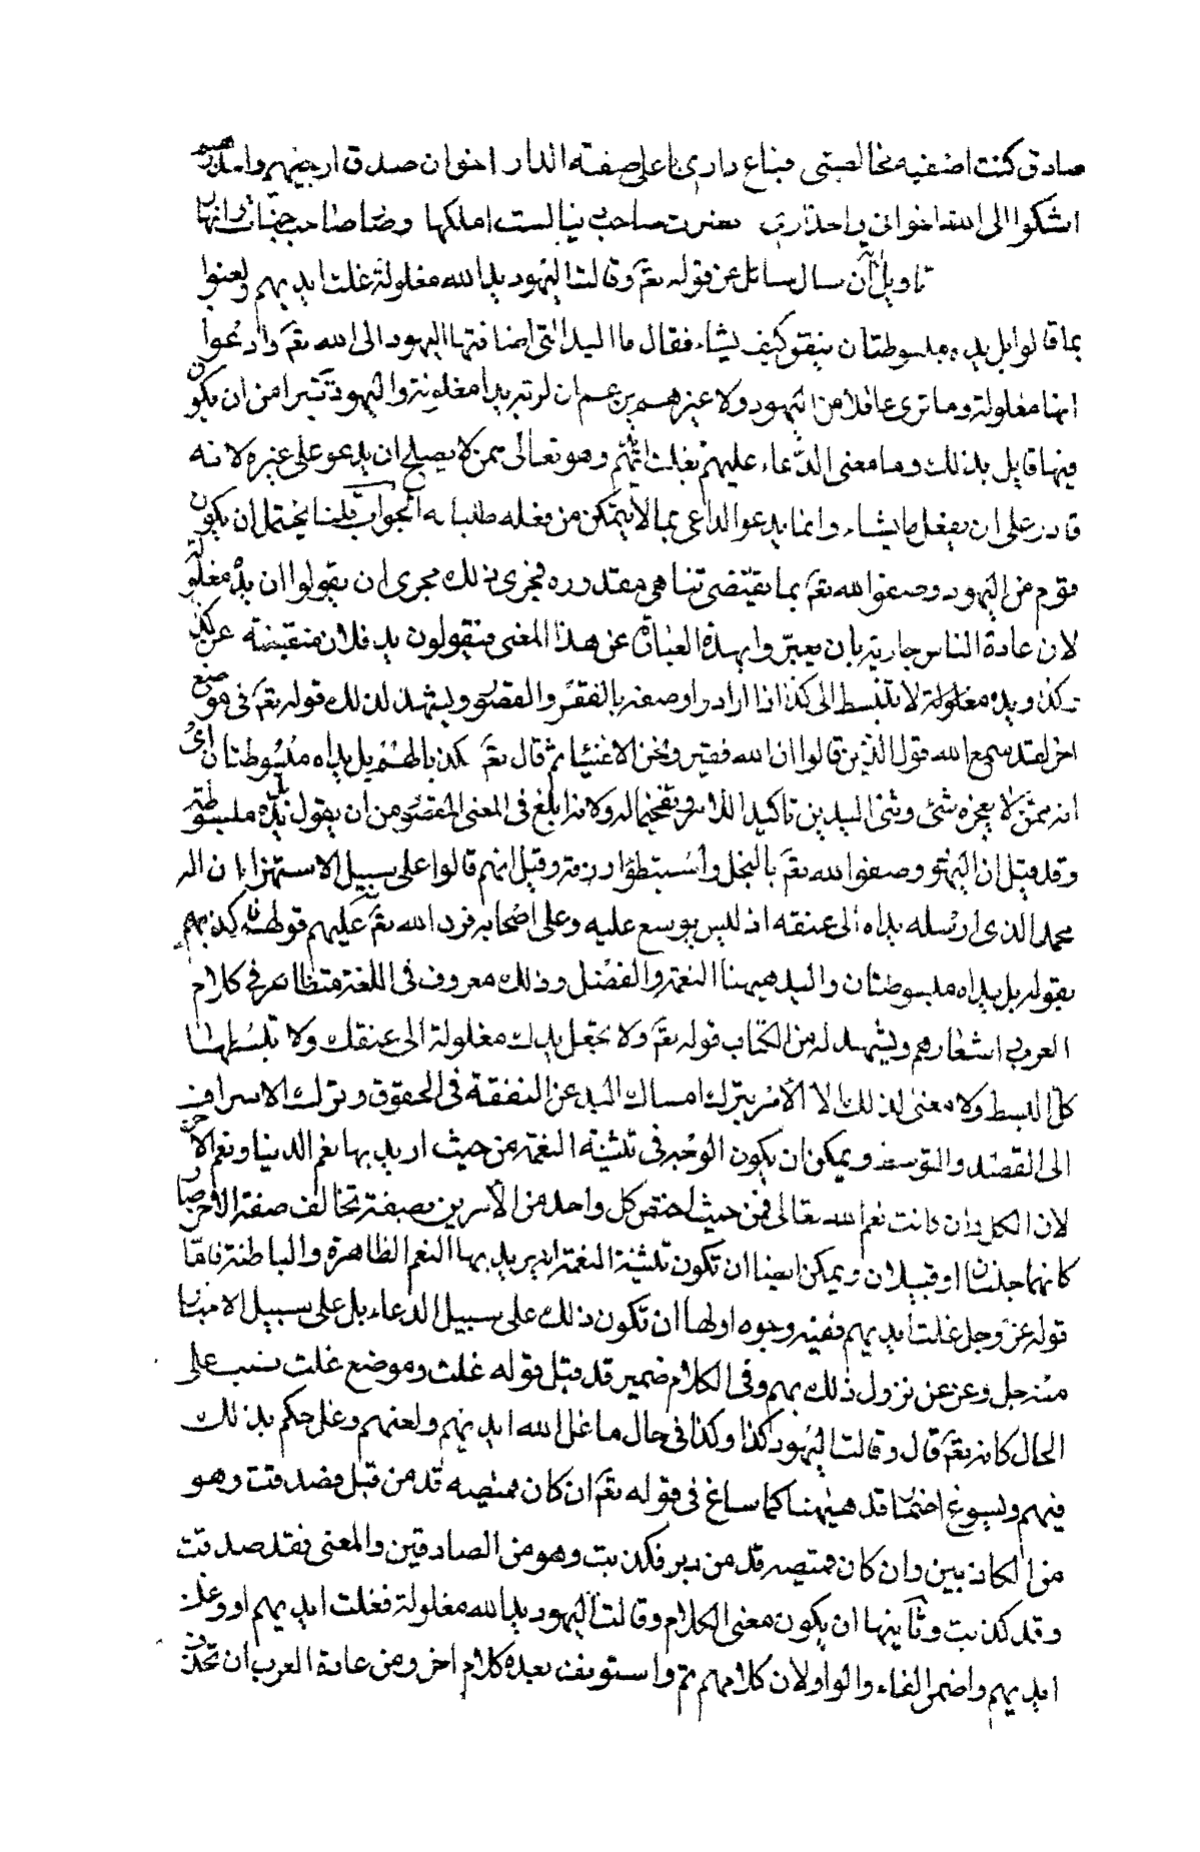 صادق كنت اصفيه مخالصتى فباع دارى باعلى صفقة الدار اخوان صدق ارجيهم وامدحهم
اشكوا الى الله اخوانى واحذارى فصرت صاحب دنيا لست املكها وصار صاحب جنات وانهار
تاويل اية ان سال سائل عن قوله تعم وقالت اليهود يد الله مغلولة غلت ايديهم ولعنوا
بما قالوا بل يداه مبسوطتان ينفق كيف يشاء فقال ما اليد التى اضافتها اليهود الى الله تعم وادعوا
انها مغلولة وما نرى عاقلا من اليهود ولا غيرهم يزعم ان لربه يدا مغلولة واليهود تتبرا من ان يكون
فيها قايل بذلك وما معنى الدعاء عليهم بغلت ايديهم وهو تعالى ممن لا يصلح ان يدعو على غيره لانه
قادر على ان يفعل ما يشاء وانما يدعو الداعى بما لا يتمكن من فعله طلبا له الجواب قلنا يحتمل ان يكون
قوم من اليهود وصفوا الله تعم بما يقتضى تناهى مقدوره فجرى ذلك مجرى ان يقولوا ان يده مغلولة
لان عادة الناس جارية بان يعبروا بهذه العبارة عن هذا المعنى فيقولون يد فلان منقبضة عن كذا
وكذا ويده مغلولة لا تنبسط الى كذا اذا ارادوا وصفه بالفقر والقصور ويشهد لذلك قوله تعم فى موضع
اخر لقد سمع الله قول الذين قالوا ان الله فقير ونحن الاغنيا ثم قال تعم مكذبا لهم بل يداه مبسوطتان اى
انه ممن لا يعجزه شئ وثنى اليدين تاكيدا للامر وتفخيما له ولانه ابلغ فى المعنى المقصود من ان يقول بل يده مبسوطة
وقد قيل ان اليهود وصفوا الله تعم بالبخل واستبطؤا رزقه وقيل انهم قالوا على سبيل الاستهزا ان اله
محمد الذى ارسله يداه الى عنقه اذ ليس يوسع عليه وعلى اصحابه فرد الله تعم عليهم قولهم وكذبهم
بقوله بل يداه مبسوطتان واليد هيهنا النعمة والفضل وذلك معروف فى اللغة متظاهر فى كلام
العرب واشعارهم ويشهد له من الكتاب قوله تعم ولا تجعل يدك مغلولة الى عنقك ولا تبسطها
كل البسط ولا معنى لذلك الا الامر بترك امساك اليد عن النفقة فى الحقوق وترك الاسراف
الى القصد والتوسط ويمكن ان يكون الوجه فى تثنية النعمة من حيث اريد بها نعم الدنيا ونعم الاخرة
لان الكل وان كانت نعم الله تعالى فمن حيث اختص كل واحد من الامرين بصفة تخالف صفة الاخر صارا
كانهما جنسان او قبيلان ويمكن ايضا ان تكون تثنية النعمة انه يريد بها النعم الظاهرة والباطنة فاما
قوله عز وجل غلت ايديهم ففيه وجوه اولها ان تكون ذلك على سبيل الدعاء بل على سبيل الاخبار
منه جل وعز عن نزول ذلك بهم وفى الكلام ضمير قد قبل قوله غلت وموضع غلت نصب على
الحال كانه تعم قال وقالت اليهود كذا وكذا فى حال ما غل الله ايديهم ولعنهم وعلى حكم بذلك
فيهم ويسوغ اضمار قد هيهنا كما ساغ فى قوله تعم ان كان قميصه قد من قبل فصدقت وهو
من الكاذبين وان كان قميصه قد من دبر فكذبت وهو من الصادقين والمعنى فقد صدقت
وقد كذبت وثانيها ان يكون معنى الكلام وقالت اليهود يد الله مغلولة فغلت ايديهم او وغلت
ايديهم واضمر الفاء والواو لان كلامهم تم واستونف بعده كلام اخر ومن عادة العرب ان تحذف